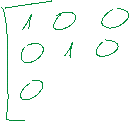 1 0 0
0 1 0
0